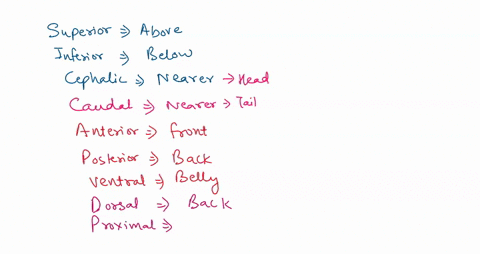 Superior ⇒ Above
Inferior ⇒ Below
Cephalic ⇒ Nearer → Head
Caudal ⇒ Nearer → Tail
Anterior ⇒ front
Posterior ⇒ Back
Ventral ⇒ Belly
Dorsal ⇒ Back
Proximal ⇒